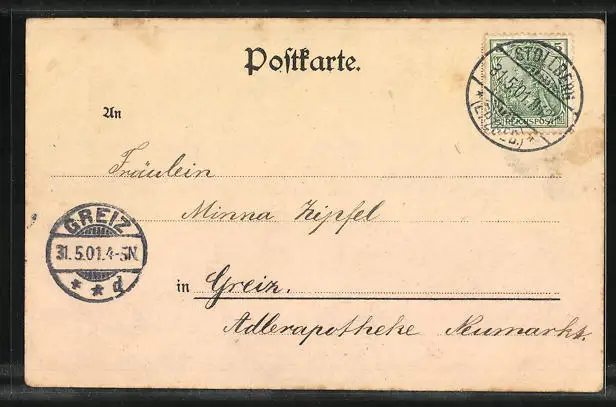 Postkarte.
STOLLBERG
31.5.01.
(ERZGEB.)
REICHSPOST
An
Fräulein
Minna Zipfel
GREIZ
31.5.01.4-5N.
* * d
in Greiz.
Adlerapotheke Neumarkt.